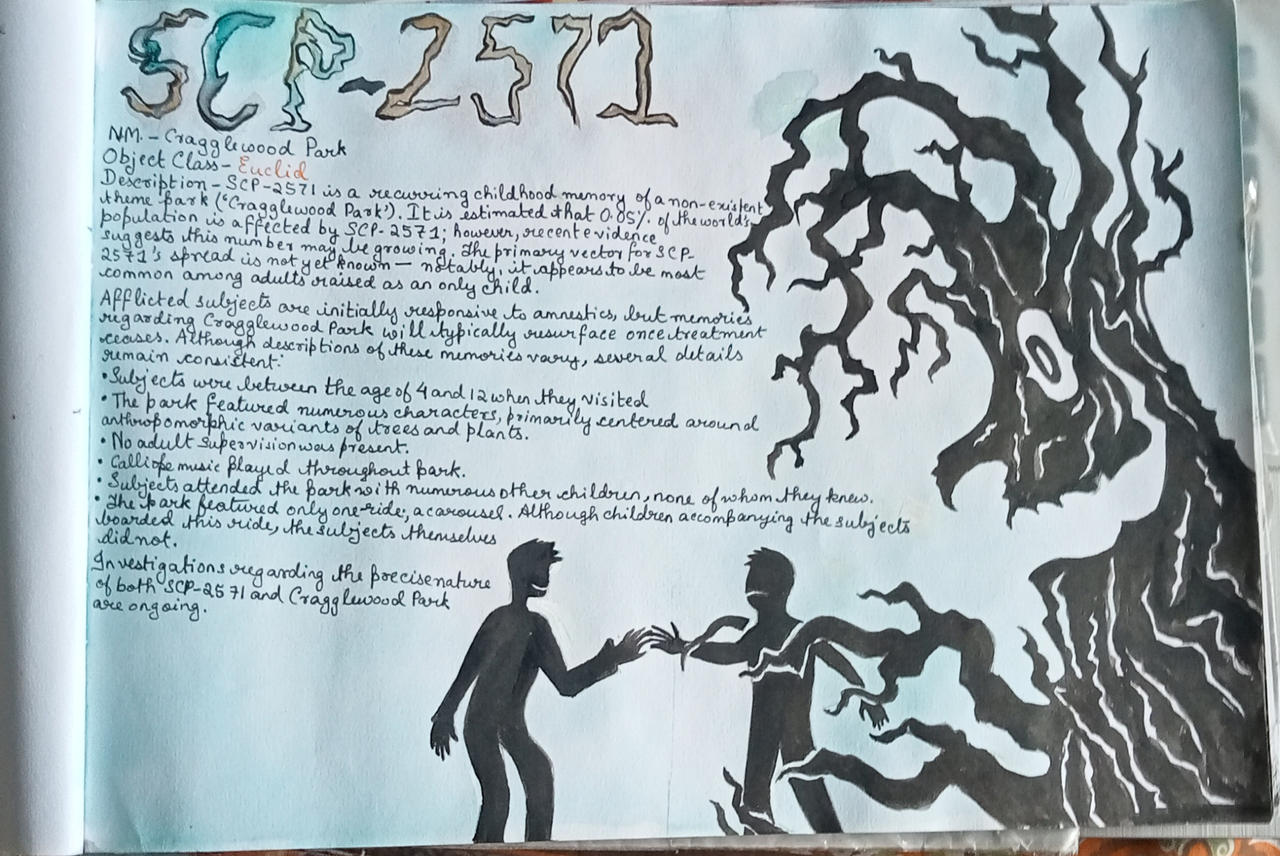 SCP-2571
NM. - Cragglewood Park
Object Class - Euclid
Description - SCP-2571 is a recurring childhood memory of a non-existent
theme park ("Cragglewood Park'). It is estimated that 0.05% of the world's
population is affected by SCP-2571; however, recent evidence
suggests this number may be growing. The primary vector for SCP-
2571's spread is not yet known — notably, it appears to be most
common among adults raised as an only child.
Afflicted subjects are initially responsive to amnestics, but memories
regarding Cragglewood Park will typically resurface once treatment
ceases. Although descriptions of these memories vary, several details
remain consistent:
• Subjects were between the age of 4 and 12 when they visited
• The park featured numerous characters, primarily centered around
anthropomorphic variants of trees and plants.
• No adult supervision was present.
• Calliope music played throughout park.
• Subjects attended the park with numerous other children, none of whom they knew.
• The park featured only one ride, a carousel. Although children accompanying the subjects
boarded this ride, the subjects themselves
did not.
Investigations regarding the precise nature
of both SCP-2571 and Cragglewood Park
are ongoing.